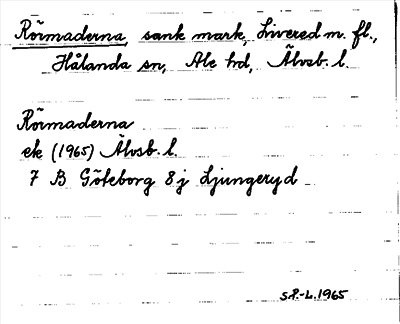 Rörmaderna, sank mark, Livered m. fl.,
Hålanda sn, Ale hd, Älvsb. l.
Rörmaderna
ek (1965) Älvsb. l.
7 B Göteborg 8 j Ljungeryd
S.P.-L. 1965